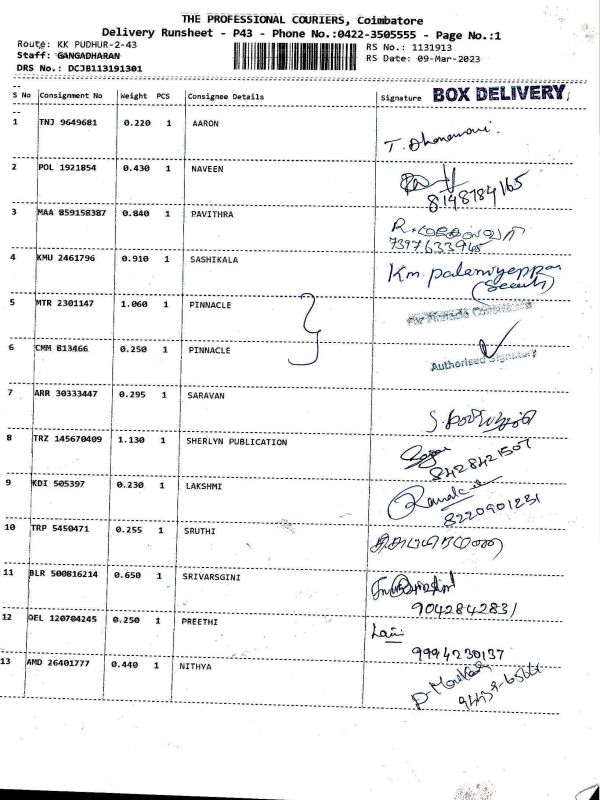 THE PROFESSIONAL COURIERS, Coimbatore
Delivery Runsheet - P43 - Phone No.:0422-3505555 - Page No.:1
Route: KK PUDHUR-2-43 RS No.: 1131913
Staff: GANGADHARAN RS Date: 09-Mar-2023
DRS No.: DCJB113191301
S No Consignment No Weight PCS Consignee Details Signature BOX DELIVERY
1 TNJ 9649681 0.220 1 AARON
2 POL 1921854 0.430 1 NAVEEN 8148784165
3 MAA 859158387 0.840 1 PAVITHRA
7397633965
4 KMU 2461796 0.910 1 SASHIKALA Km. palaniyappan
5 MTR 2301147 1.060 1 PINNACLE For
6 CMM 813466 0.250 1 PINNACLE Authorised Signatory
7 ARR 30333447 0.295 1 SARAVAN
8 TRZ 145670409 1.130 1 SHERLYN PUBLICATION 8428421507
9 KDI 505397 0.230 1 LAKSHMI
8220901231
10 TRP 5450471 0.255 1 SRUTHI
11 BLR 500816214 0.650 1 SRIVARSGINI
9042842831
12 DEL 120704245 0.250 1 PREETHI
9994230137
13 AMD 26401777 0.440 1 NITHYA